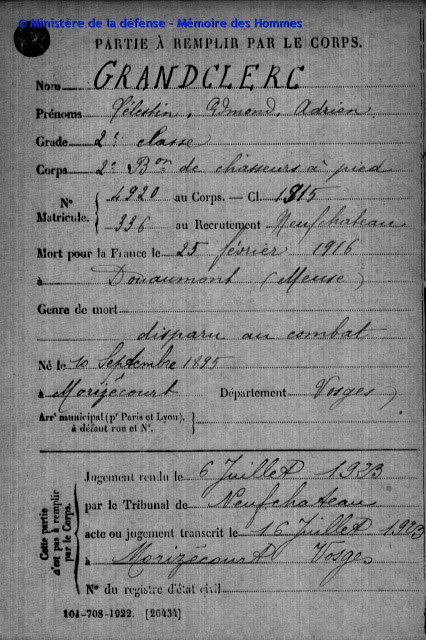 © Ministère de la défense - Mémoire des Hommes
PARTIE À REMPLIR PAR LE CORPS.
Nom GRANDCLERC
Prénoms Célestin, Edmond, Adrien
Grade 2e classe
Corps 2e Bon de chasseurs à pied
N° Matricule. { 4920 au Corps. — Cl. 1815
336 au Recrutement Neufchateau
Mort pour la France le 25 février 1916
à Douaumont (Meuse)
Genre de mort
disparu au combat
Né le 10 Septembre 1895
à Morizécourt Département Vosges
Arrt municipal (pr Paris et Lyon), à défaut rue et N°. }
Cette partie n'est pas à remplir par le Corps.
Jugement rendu le 6 Juillet 1923
par le Tribunal de Neufchateau
acte ou jugement transcrit le 16 Juillet 1923
à Morizécourt Vosges
N° du registre d'état civil
101-708-1922. [26434]